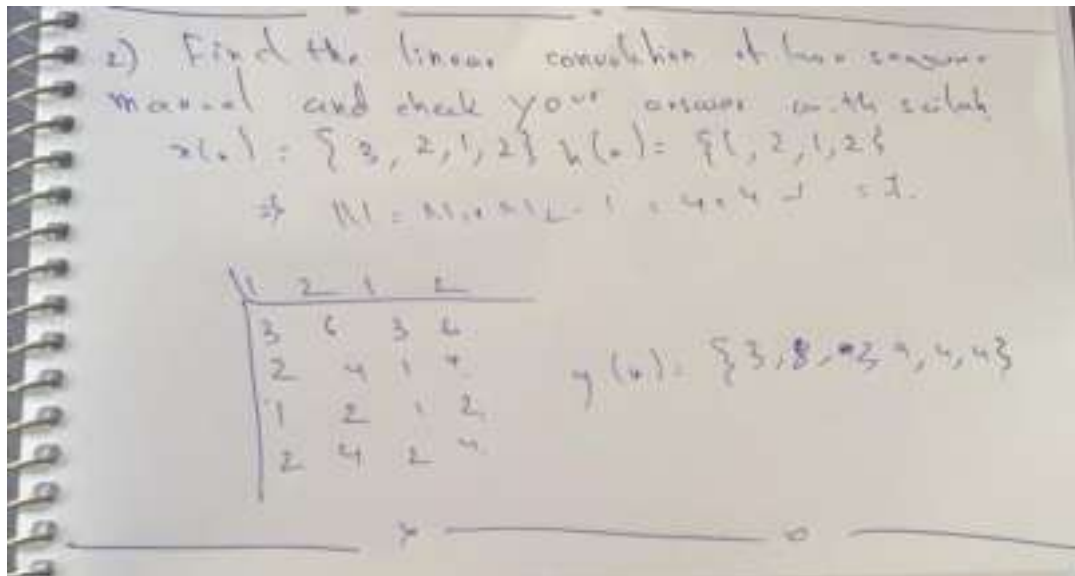 2) Find the linear convolution of two
manual and check your answer with scilab
x(n) = { 3, 2, 1, 2 } h(n) = { 1, 2, 1, 2 }
⇒ = 4 + 4 - 1 = 7.
1 2 1 2
3 6 3 6
2 4 1 4
1 2 1 2
2 4 2 4
y(n) = { 3, 8, 9, 4, 4 }